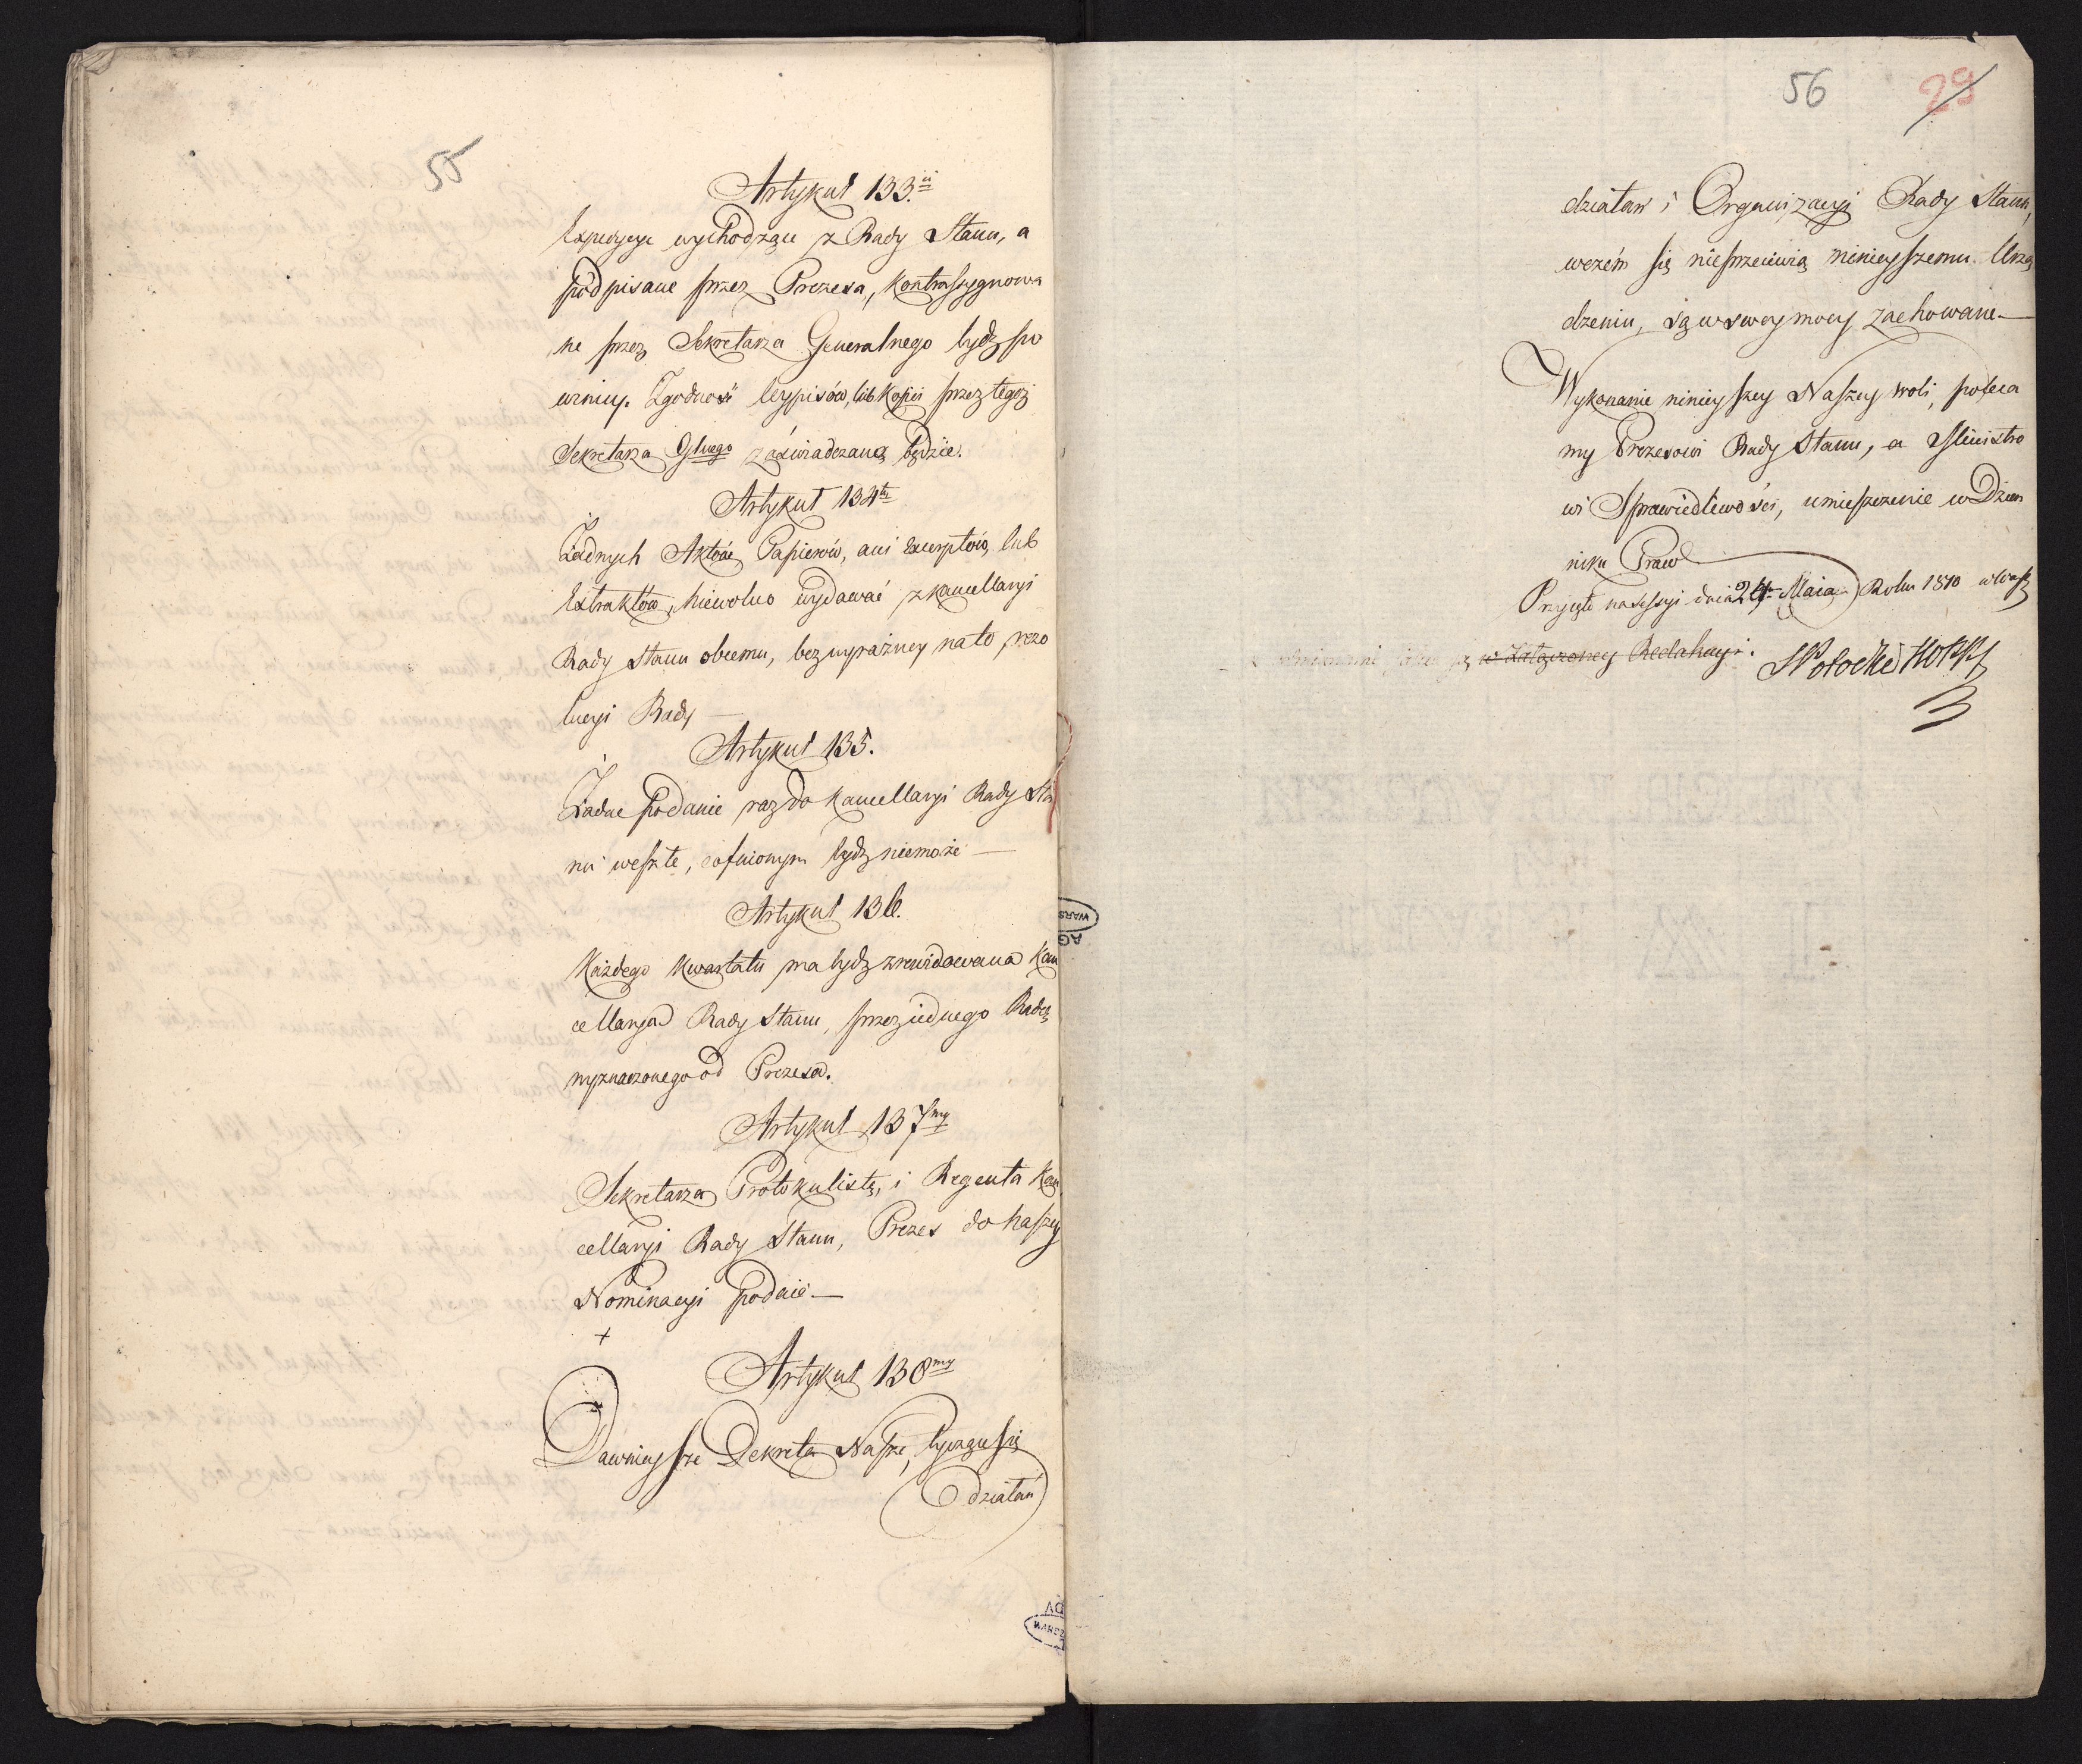 55
Artykuł 133.ci
Expedycye wychodzące z Rady Stanu, a
podpisane przez Prezesa, kontrassygnowa
ne przez Sekretarza Generalnego bydź po
winny. Zgodność wypisów, lub kopii przez tegoż
Sekretarza Glnego zaświadczana będzie.
Artykuł 134ty
Żadnych Aktów, Papierów, ani Excerptów, lub
Extraktów, niewolno wydawać z kancellaryi
Rady Stanu obcemu, bez wyraźney na to rezo
lucyi Rady —
Artykuł 135.
Żadne podanie raz do kancellaryi Rady Sta
nu weszłe, cofnionym bydź niemoże —
Artykuł 136.
Każdego kwartału ma bydź zrewidowana Kan
cellarya Rady Stanu, przez iednego Radcę
wyznaczonego od Prezesa.
Artykuł 137my
Sekretarza Protokulistę, i Regenta Kan
cellaryi Rady Stanu, Prezes do naszey
Nominacyi podaie —
+
Artykuł 138my
Dawnieysze Dekreta Nasze, tyczące się
działań
56
29
działań i Organizacyi Rady Stanu,
wczém się niesprzeciwią ninieyszemu Urzą
dzeniu, są w swey mocy zachowane —
Wykonanie ninieyszey Naszey woli, poleca
my Prezesowi Rady Stanu, a Ministro
wi Sprawiedliwości, umieszczenie w Dzien
niku Praw
Przyięte na Sessyi dnia 24 Maia Roku 1810 w Warsz
w załączoney Redakcyi. SPotocki